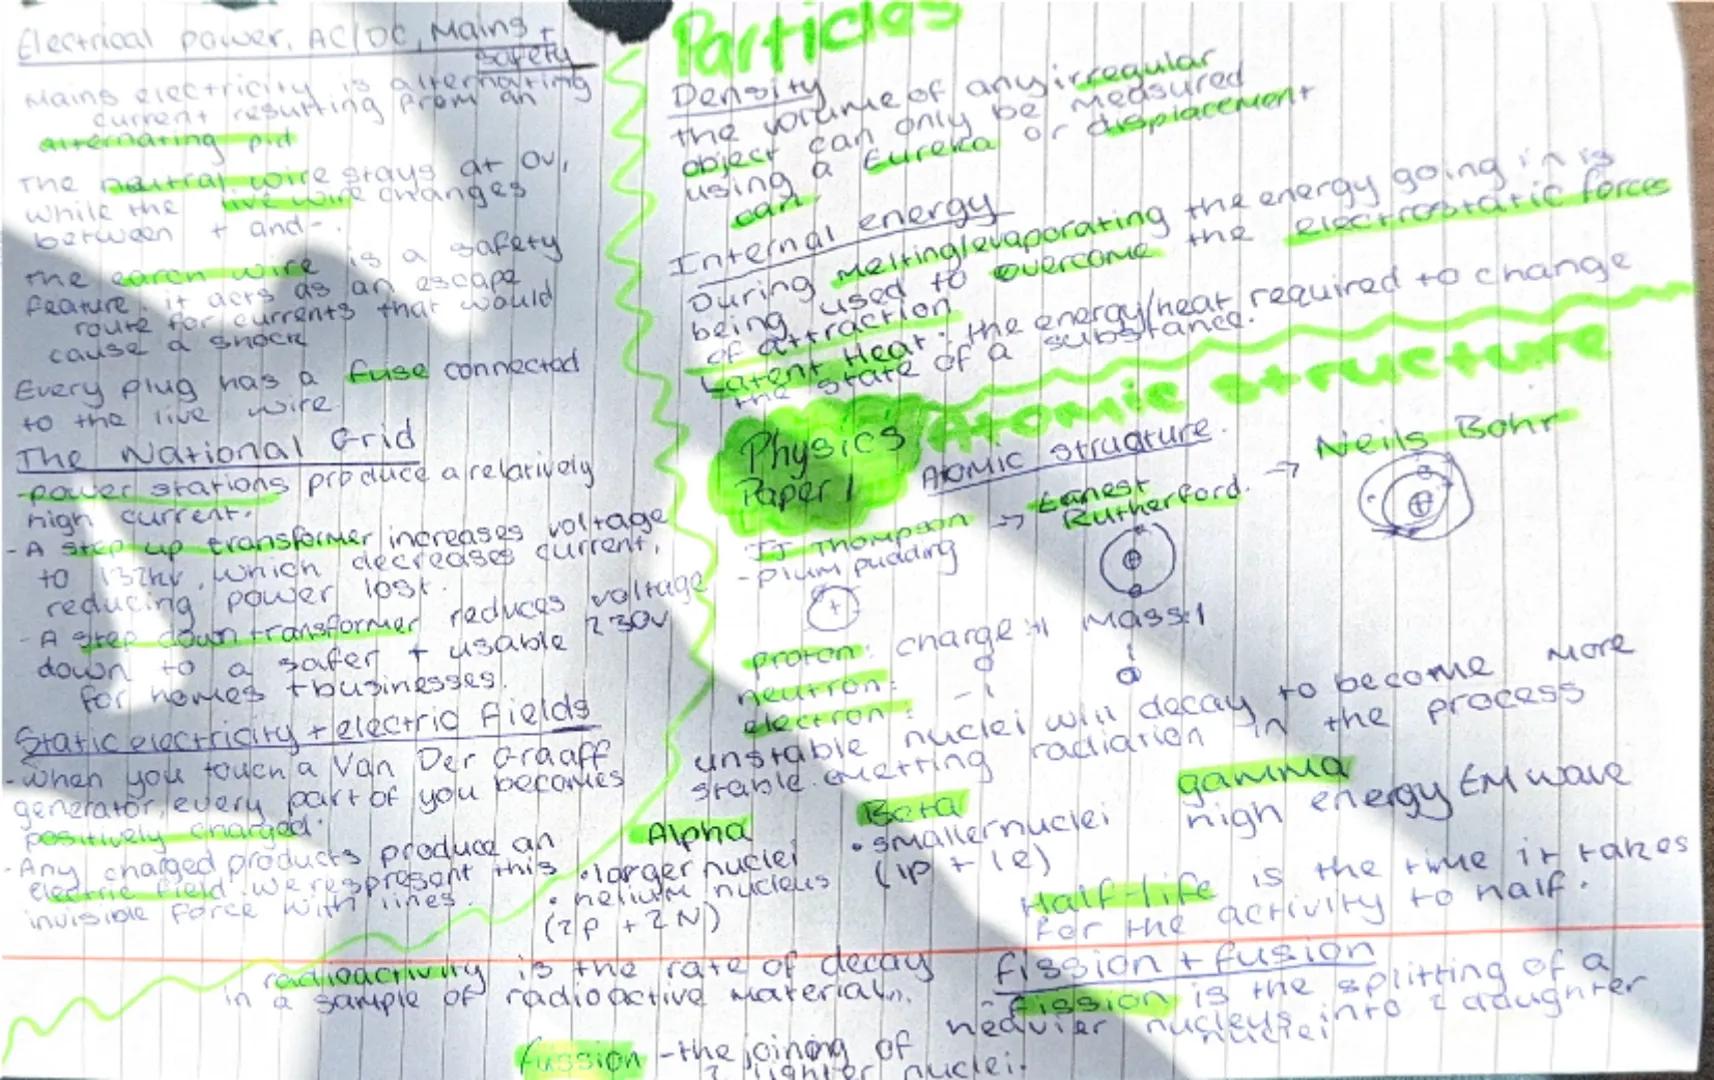 Electrical power, AC/DC, Mains +
safety
Mains electricity is alternating
current resulting from an
alternating pd
The neutral wire stays at 0v,
while the live wire changes
between + and -.
The earth wire is a safety
feature, it acts as an escape
route for currents that would
cause a shock
Every plug has a fuse connected
to the live wire.
The National Grid
-power stations produce a relatively
high current.
- A step up transformer increases voltage
to 132kv, which decreases current,
reducing power lost.
- A step down transformer reduces voltage
down to a safer + usable 230v
for homes + businesses.
Static electricity + electric fields
-when you touch a Van Der Graaff
generator, every part of you becomes
positively charged.
-Any charged products produce an
electric field. we respresent this
invisible force with lines.
Particles
Density
the volume of any irregular
object can only be measured
using a Eureka or displacement
can.
Internal energy
During melting/evaporating the energy going in is
being used to overcome the electrostatic forces
of attraction
Latent Heat: the energy/heat required to change
the state of a substance.
Physics
Paper 1
Atomic structure
Atomic structure.
JJ Thompson
- plum pudding
+
→ Ernest
Rutherford.
→ Neils Bohr
proton: charge: +1 Mass: 1
neutron: 0 1
electron: -1 0
unstable nuclei will decay to become more
stable. emetting radiation in the process
Alpha
• larger nuclei
• helium nucleus
(2p + 2N)
Beta
• smaller nuclei
(1p + 1e)
gamma
high energy EM wave
Half-life is the time it takes
for the activity to half.
radioactivity is the rate of decay
in a sample of radioactive material.
fission + fusion
- fission is the splitting of a
heavier nucleus into 2 daughter
nuclei
fussion - the joining of
2 lighter nuclei.